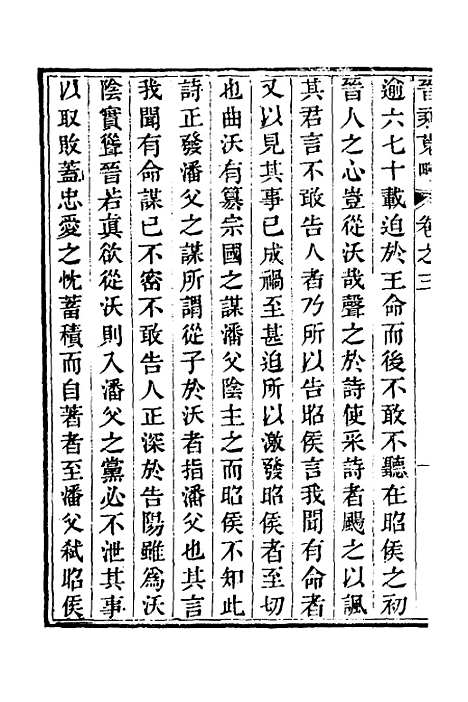 晉乘蒐略 卷之三
逾六七十載迫於王命而後不敢不聽在昭侯之初
晉人之心豈從沃哉聲之於詩使采詩者颺之以諷
其君言不敢告人者乃所以告昭侯言我聞有命者
又以見其事已成禍至甚迫所以激發昭侯者至切
也曲沃有篡宗國之謀潘父陰主之而昭侯不知此
詩正發潘父之謀所謂從子於沃者指潘父也其言
我聞有命謀已不密不敢告人正深於告陽雖爲沃
陰實聳晉若眞欲從沃則入潘父之黨必不泄其事
以取敗蓋忠愛之忱蓄積而自著者至潘父弒昭侯